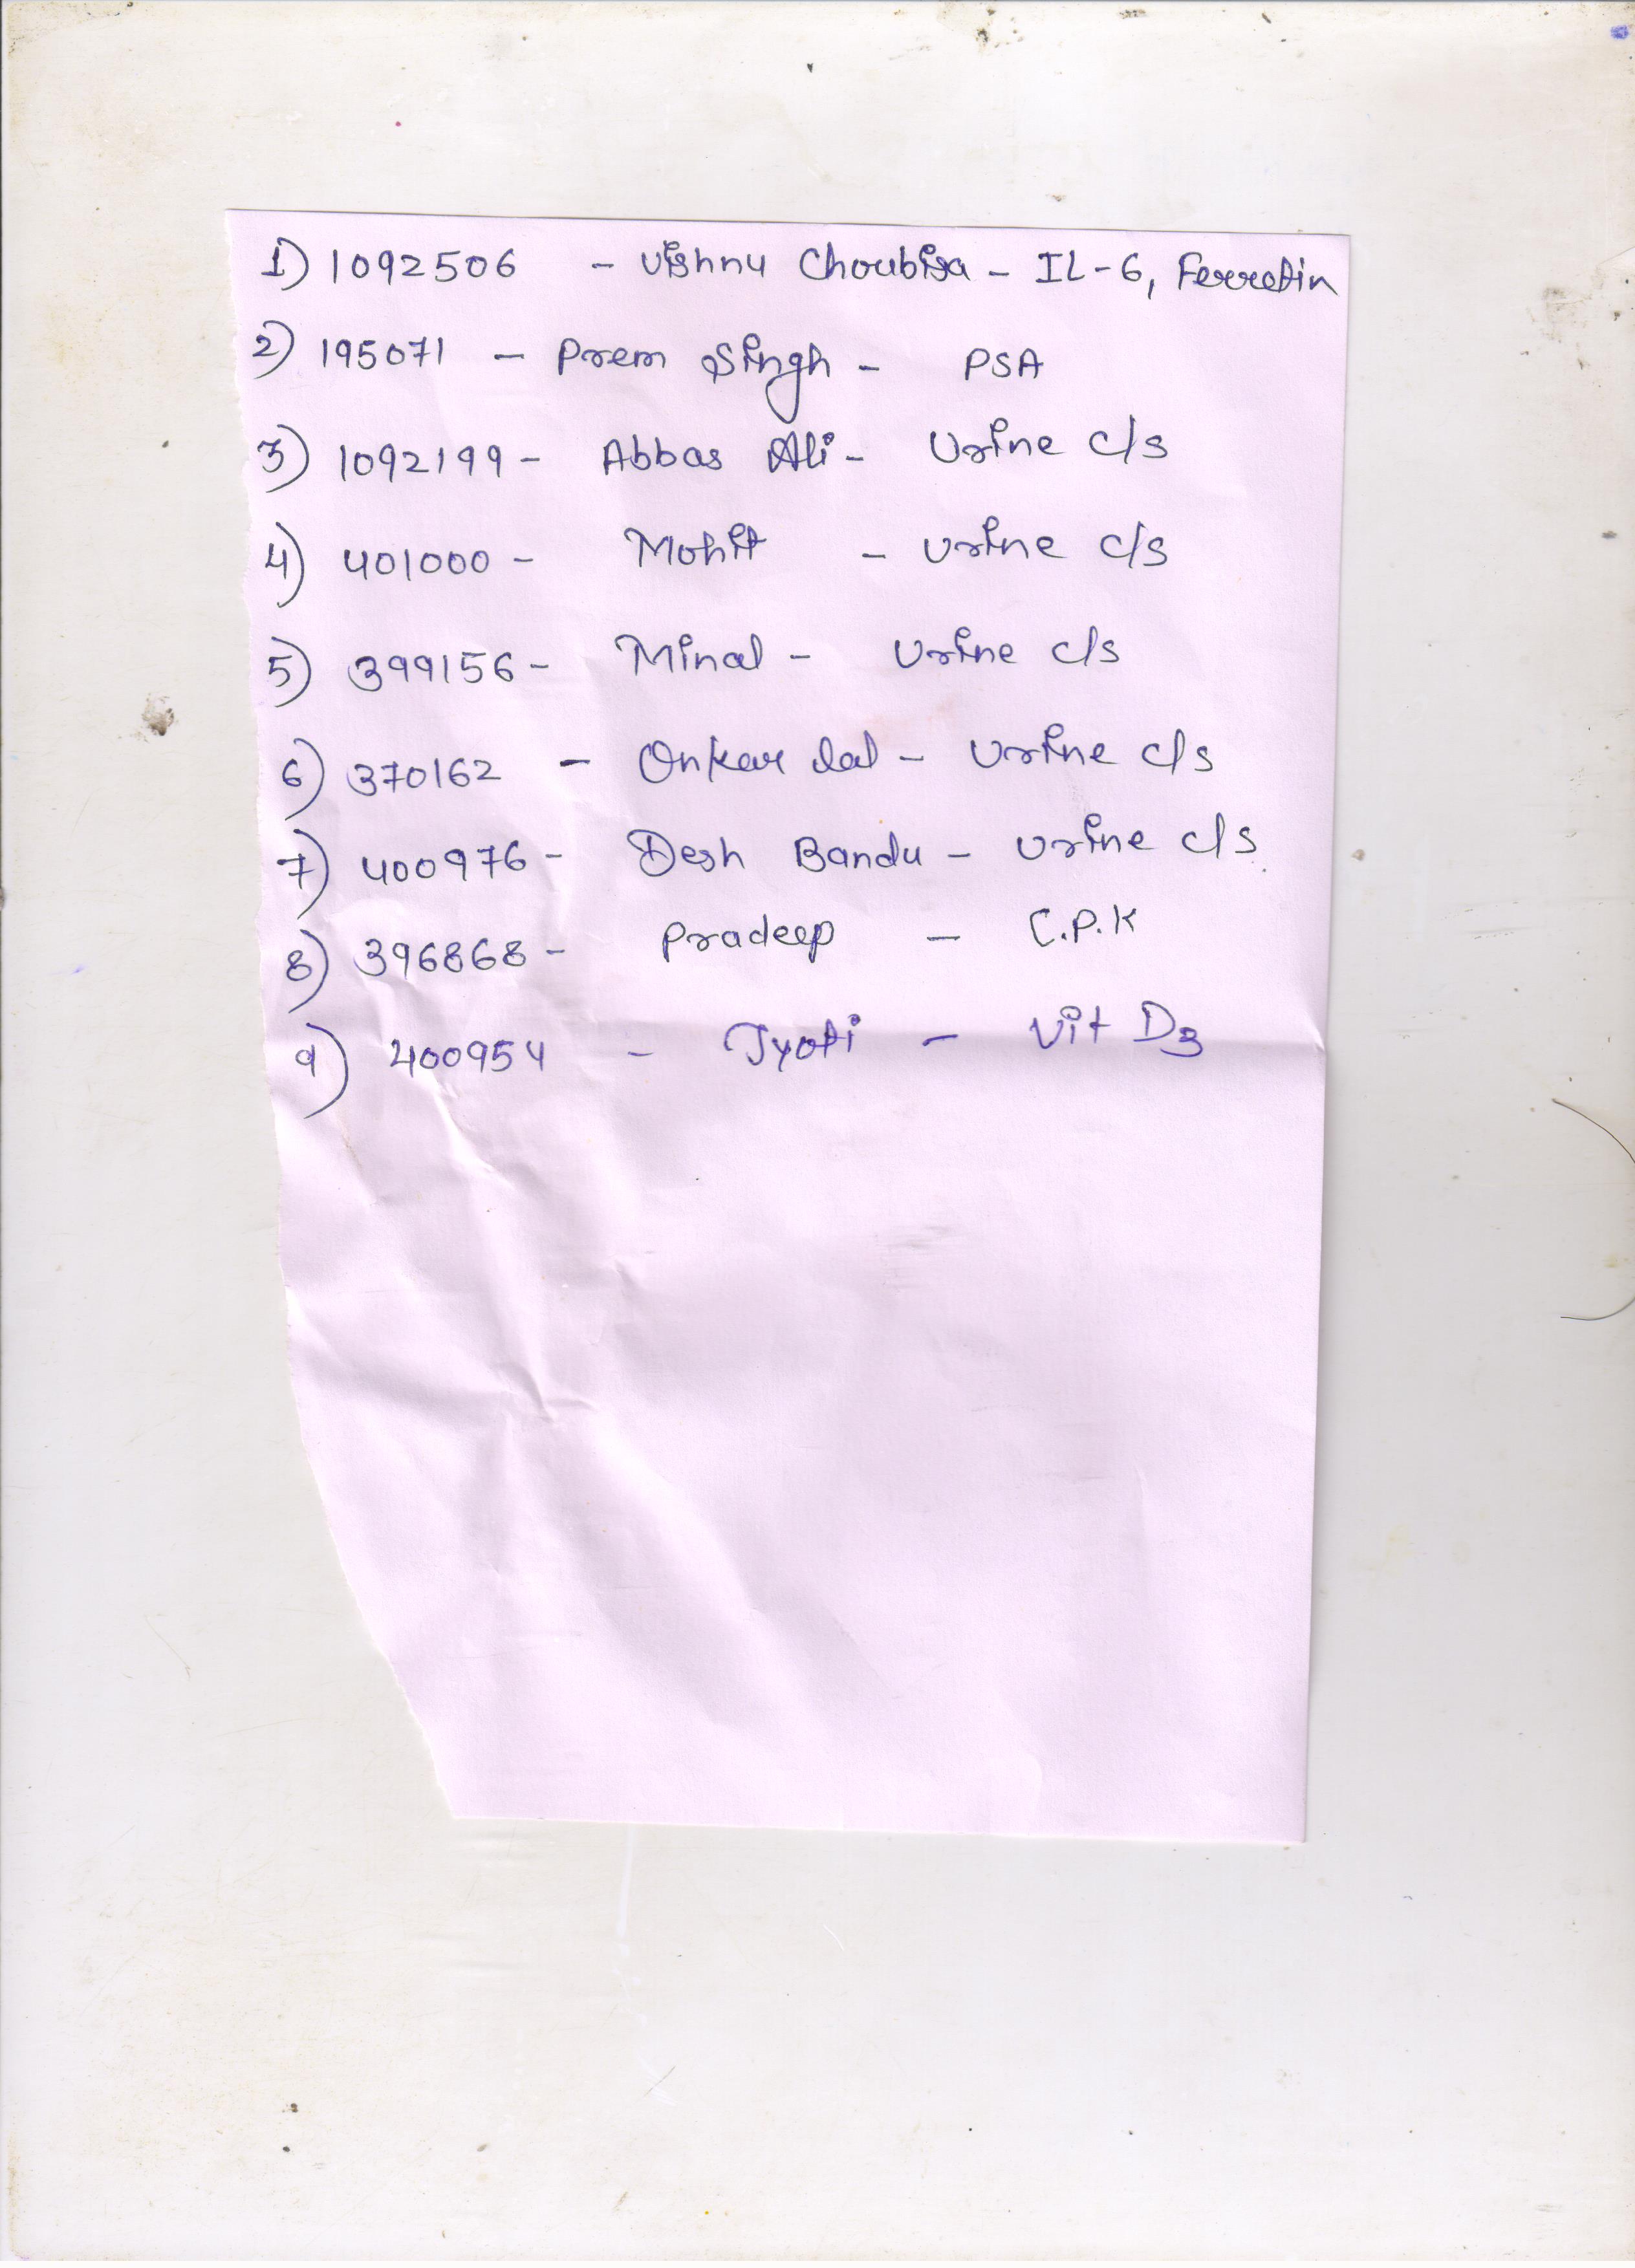 1) 1092506 - Vishnu Choubisa - IL-6, Ferretin
2) 195071 - Prem Singh - PSA
3) 1092199 - Abbas Ali - Urine c/s
4) 401000 - Mohit - Urine c/s
5) 399156 - Minal - Urine c/s
6) 370162 - Onkar Lal - Urine c/s
7) 400976 - Desh Bandu - Urine c/s
8) 396868 - Pradeep - C.P.K
9) 400954 - Jyoti - Vit D3